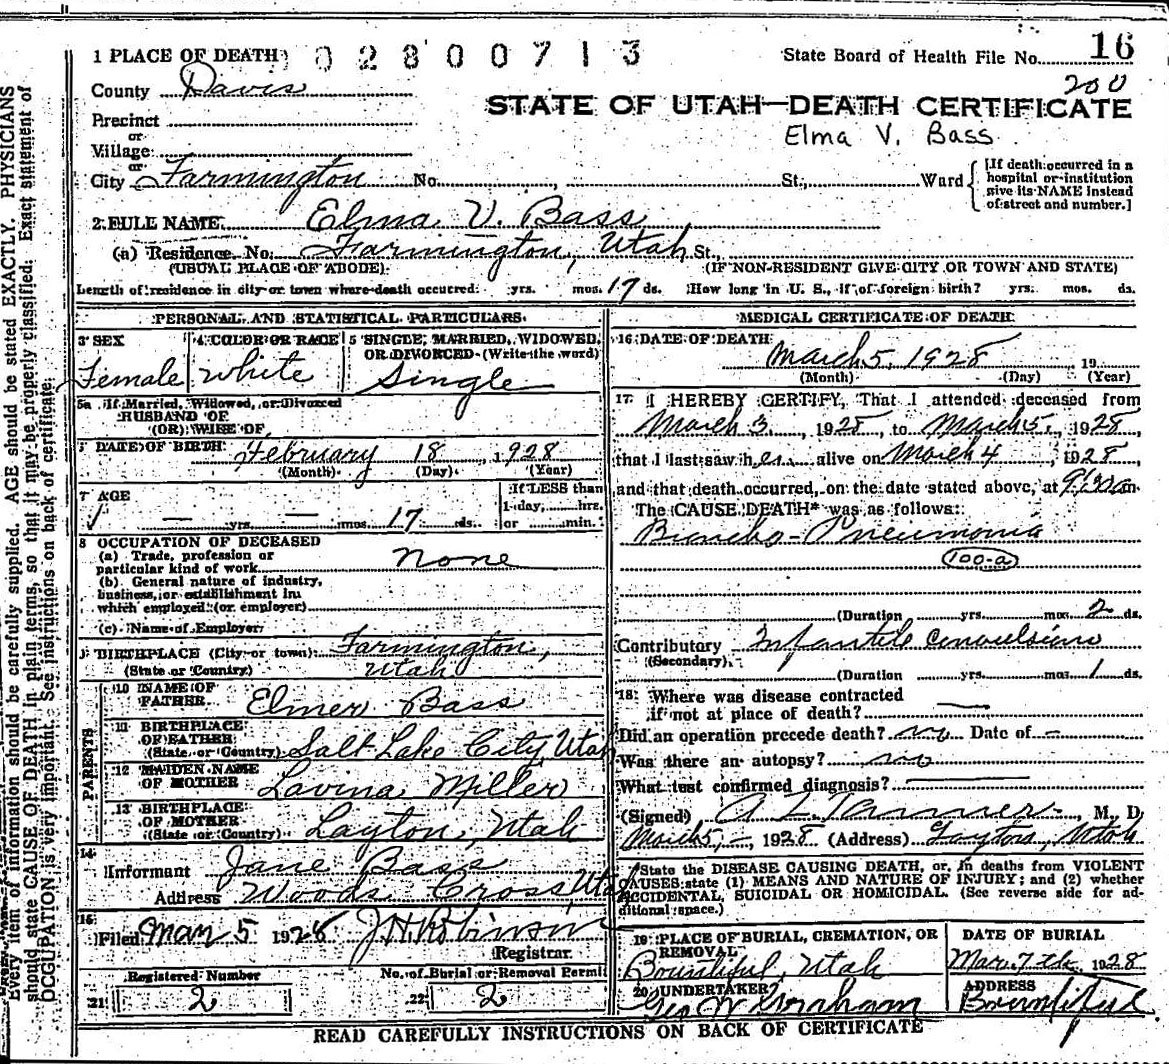 1 PLACE OF DEATH 02800713 State Board of Health File No. 16
County Davis 200
STATE OF UTAH—DEATH CERTIFICATE
Precinct
or
Elma V. Bass
Village
or
City Farmington No. St., Ward
[If death occurred in a
hospital or institution
give its NAME instead
of street and number.]
2 FULL NAME Elma V. Bass
(a) Residence. No. Farmington, Utah St.,
(USUAL PLACE OF ABODE) (IF NON-RESIDENT GIVE CITY OR TOWN AND STATE)
Length of residence in city or town where death occurred: yrs. mos. 17 ds. How long in U. S., if of foreign birth? yrs. mos. ds.
PERSONAL AND STATISTICAL PARTICULARS
3 SEX
Female
4 COLOR OR RACE
White
5 SINGLE, MARRIED, WIDOWED,
OR DIVORCED (Write the word)
Single
5a If Married, Widowed, or Divorced
HUSBAND OF
(OR) WIFE OF
DATE OF BIRTH February 18, 1928
(Month) (Day) (Year)
7 AGE
— yrs. — mos. 17 ds.
If LESS than
1 day, hrs.
or min.
8 OCCUPATION OF DECEASED
(a) Trade, profession or
particular kind of work None
(b) General nature of industry,
business, or establishment in
which employed (or employer)
(c) Name of Employer
9 BIRTHPLACE (City or town) Farmington,
(State or Country) Utah
PARENTS
10 NAME OF
FATHER Elmer Bass
11 BIRTHPLACE
OF FATHER
(State or Country) Salt Lake City, Utah
12 MAIDEN NAME
OF MOTHER Lavina Miller
13 BIRTHPLACE
OF MOTHER
(State or Country) Layton, Utah
14
Informant Jane Bass
Address Woods Cross, Utah
15
Filed Mar 5 1928 J H Robinson
Registrar.
Registered Number No. of Burial or Removal Permit
21 2 22 2
MEDICAL CERTIFICATE OF DEATH
16 DATE OF DEATH
March 5, 1928 19
(Month) (Day) (Year)
17 I HEREBY CERTIFY, That I attended deceased from
March 3, 1928, to March 5, 1928,
that I last saw her alive on March 4, 1928,
and that death occurred, on the date stated above, at 9:30 am.
The CAUSE DEATH* was as follows:
Broncho-Pneumonia
100-a
(Duration yrs. mos. 2 ds.
Contributory Infantile Convulsions
(Secondary)
(Duration yrs. mos. 1 ds.
18 Where was disease contracted
if not at place of death? —
Did an operation precede death? no Date of —
Was there an autopsy? no
What test confirmed diagnosis? —
(Signed) A L Tanner, M. D.
March 5, 1928 (Address) Layton, Utah
*State the DISEASE CAUSING DEATH, or, in deaths from VIOLENT
CAUSES state (1) MEANS AND NATURE OF INJURY; and (2) whether
ACCIDENTAL, SUICIDAL OR HOMICIDAL. (See reverse side for ad-
ditional space.)
19 PLACE OF BURIAL, CREMATION, OR
REMOVAL
Bountiful, Utah
DATE OF BURIAL
Mar. 7th 1928
20 UNDERTAKER
Geo W Graham
ADDRESS
Bountiful
READ CAREFULLY INSTRUCTIONS ON BACK OF CERTIFICATE
Every item of information should be carefully supplied. AGE should be stated EXACTLY. PHYSICIANS
should state CAUSE OF DEATH in plain terms, so that it may be properly classified. Exact statement of
OCCUPATION is very important. See instructions on back of certificate.